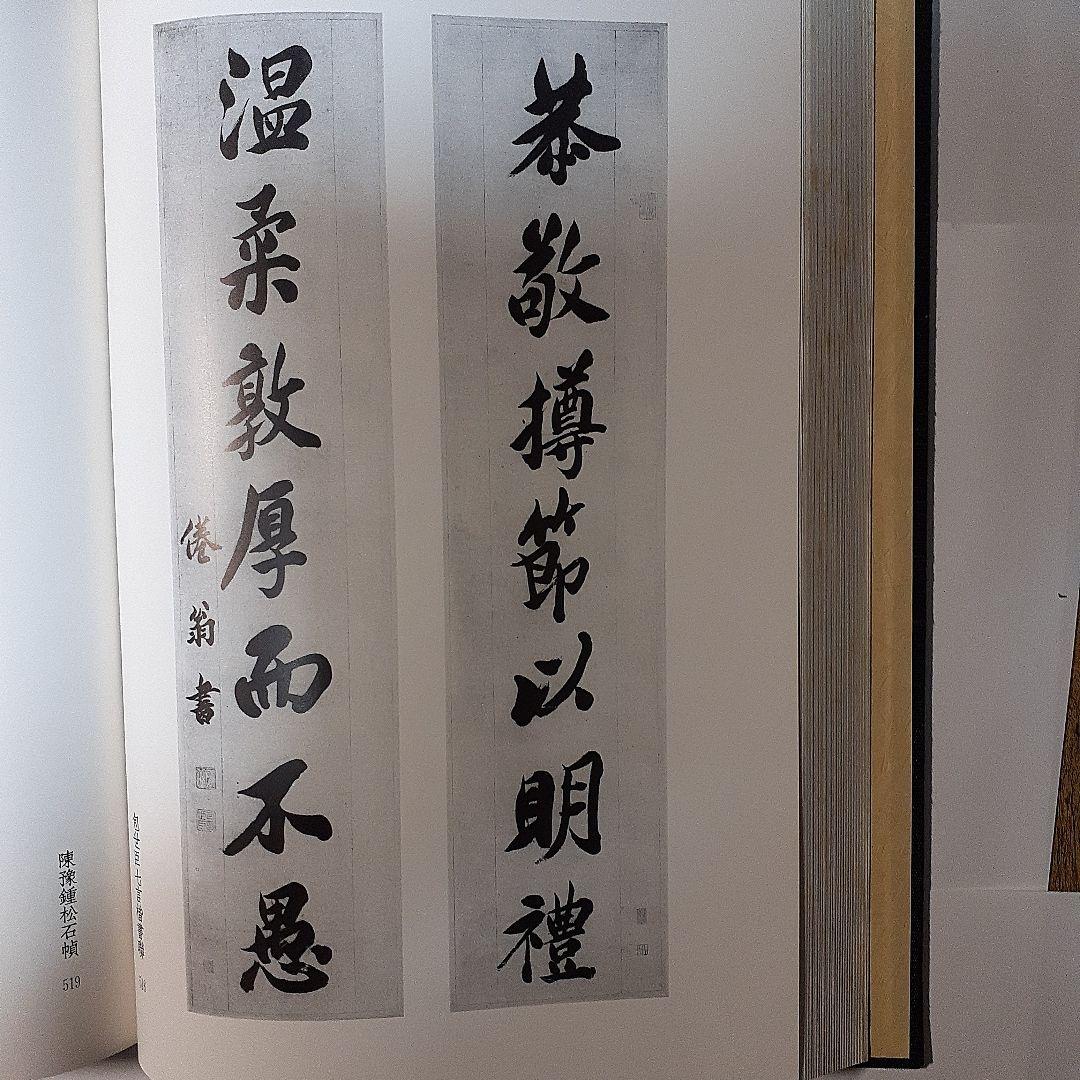 恭敬撙節以明禮
温柔敦厚而不愚
倦翁書
518
陳豫鍾松石幀 519